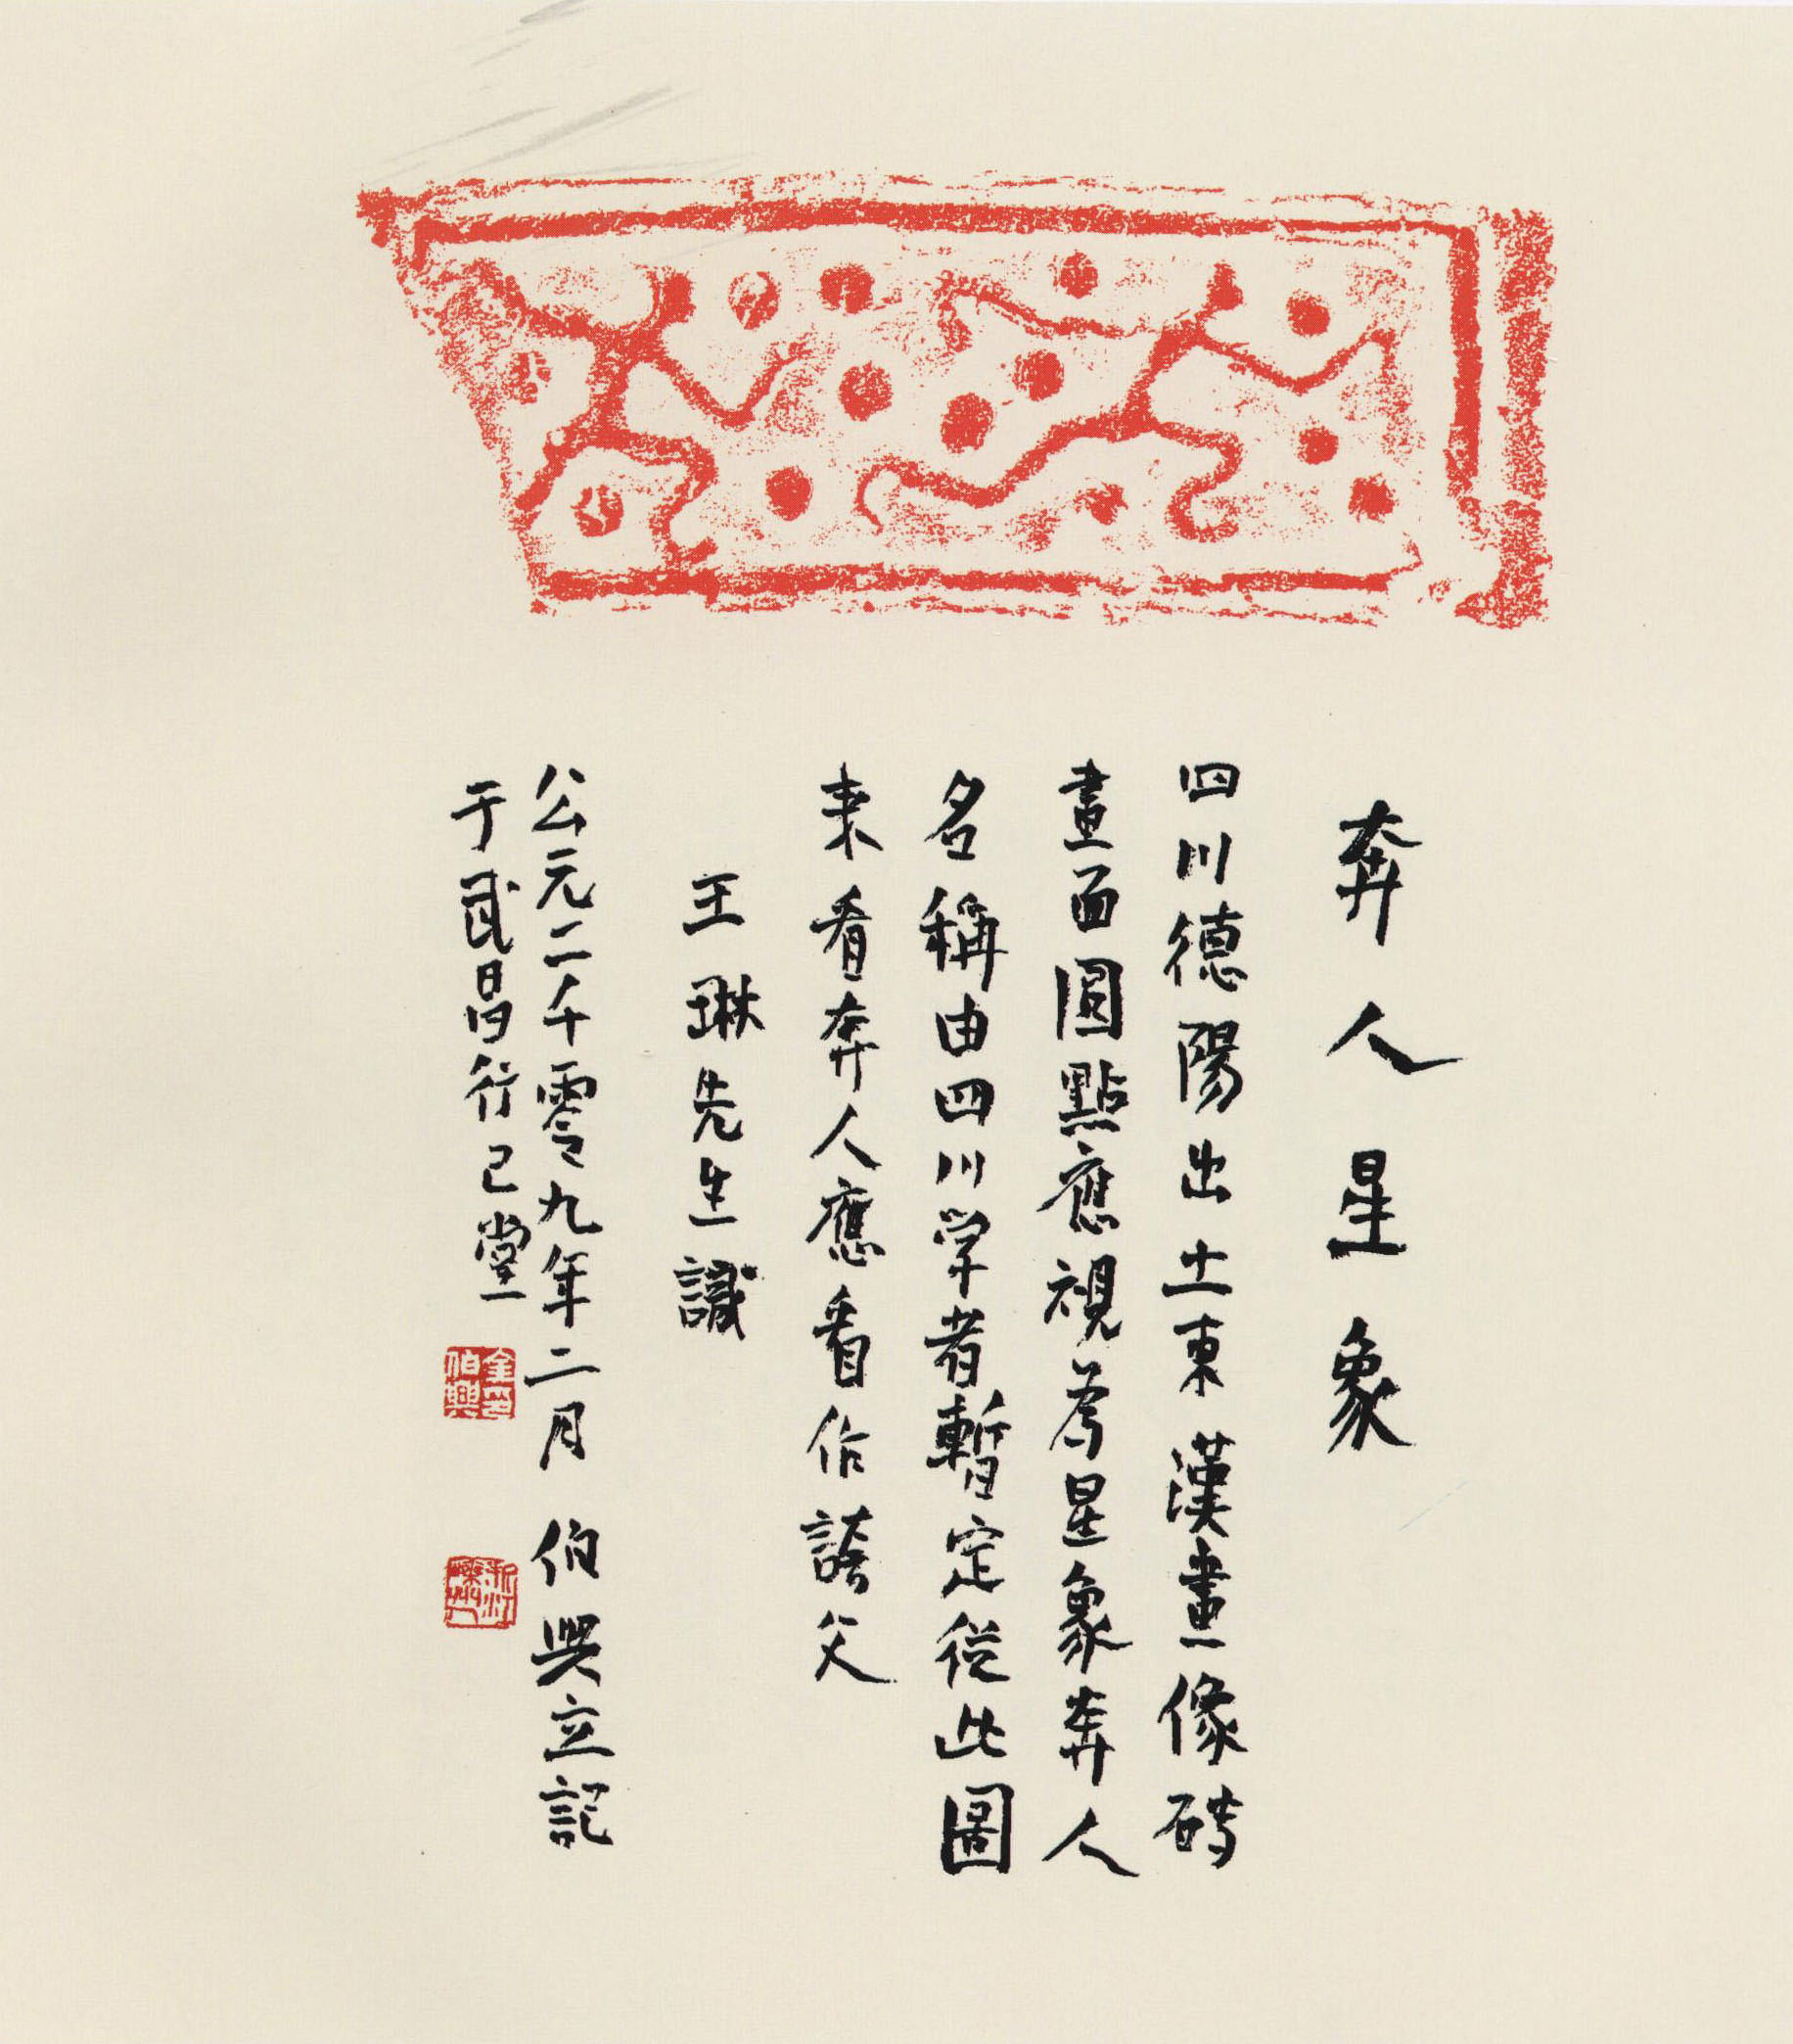 奔人星象
四川德陽出土東漢畫像砖
畫面圓點應視為星象奔人
名稱由四川学者暫定從此圖
来看奔人應看作誇父
王琳先生識
公元二千零九年二月 伯興立記
于武昌行己堂
金伯興印